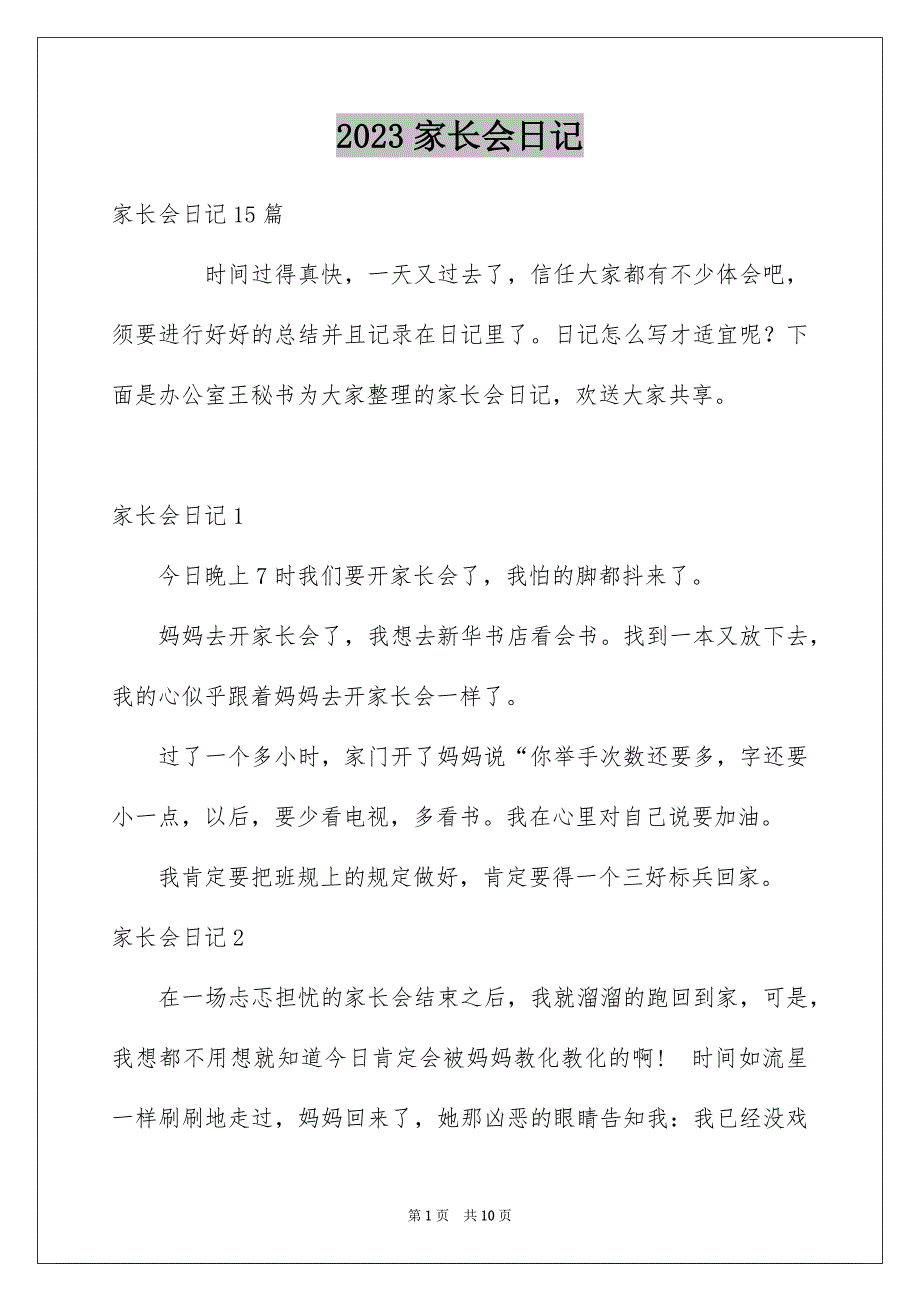 2023家长会日记
家长会日记15篇
时间过得真快，一天又过去了，信任大家都有不少体会吧，
须要进行好好的总结并且记录在日记里了。日记怎么写才适宜呢？下
面是办公室王秘书为大家整理的家长会日记，欢送大家共享。
家长会日记1
今日晚上7时我们要开家长会了，我怕的脚都抖来了。
妈妈去开家长会了，我想去新华书店看会书。找到一本又放下去，
我的心似乎跟着妈妈去开家长会一样了。
过了一个多小时，家门开了妈妈说“你举手次数还要多，字还要
小一点，以后，要少看电视，多看书。我在心里对自己说要加油。
我肯定要把班规上的规定做好，肯定要得一个三好标兵回家。
家长会日记2
在一场忐忑担忧的家长会结束之后，我就溜溜的跑回到家，可是，
我想都不用想就知道今日肯定会被妈妈教化教化的啊！ 时间如流星
一样刷刷地走过，妈妈回来了，她那凶恶的眼睛告知我：我已经没戏
第1页 共10页